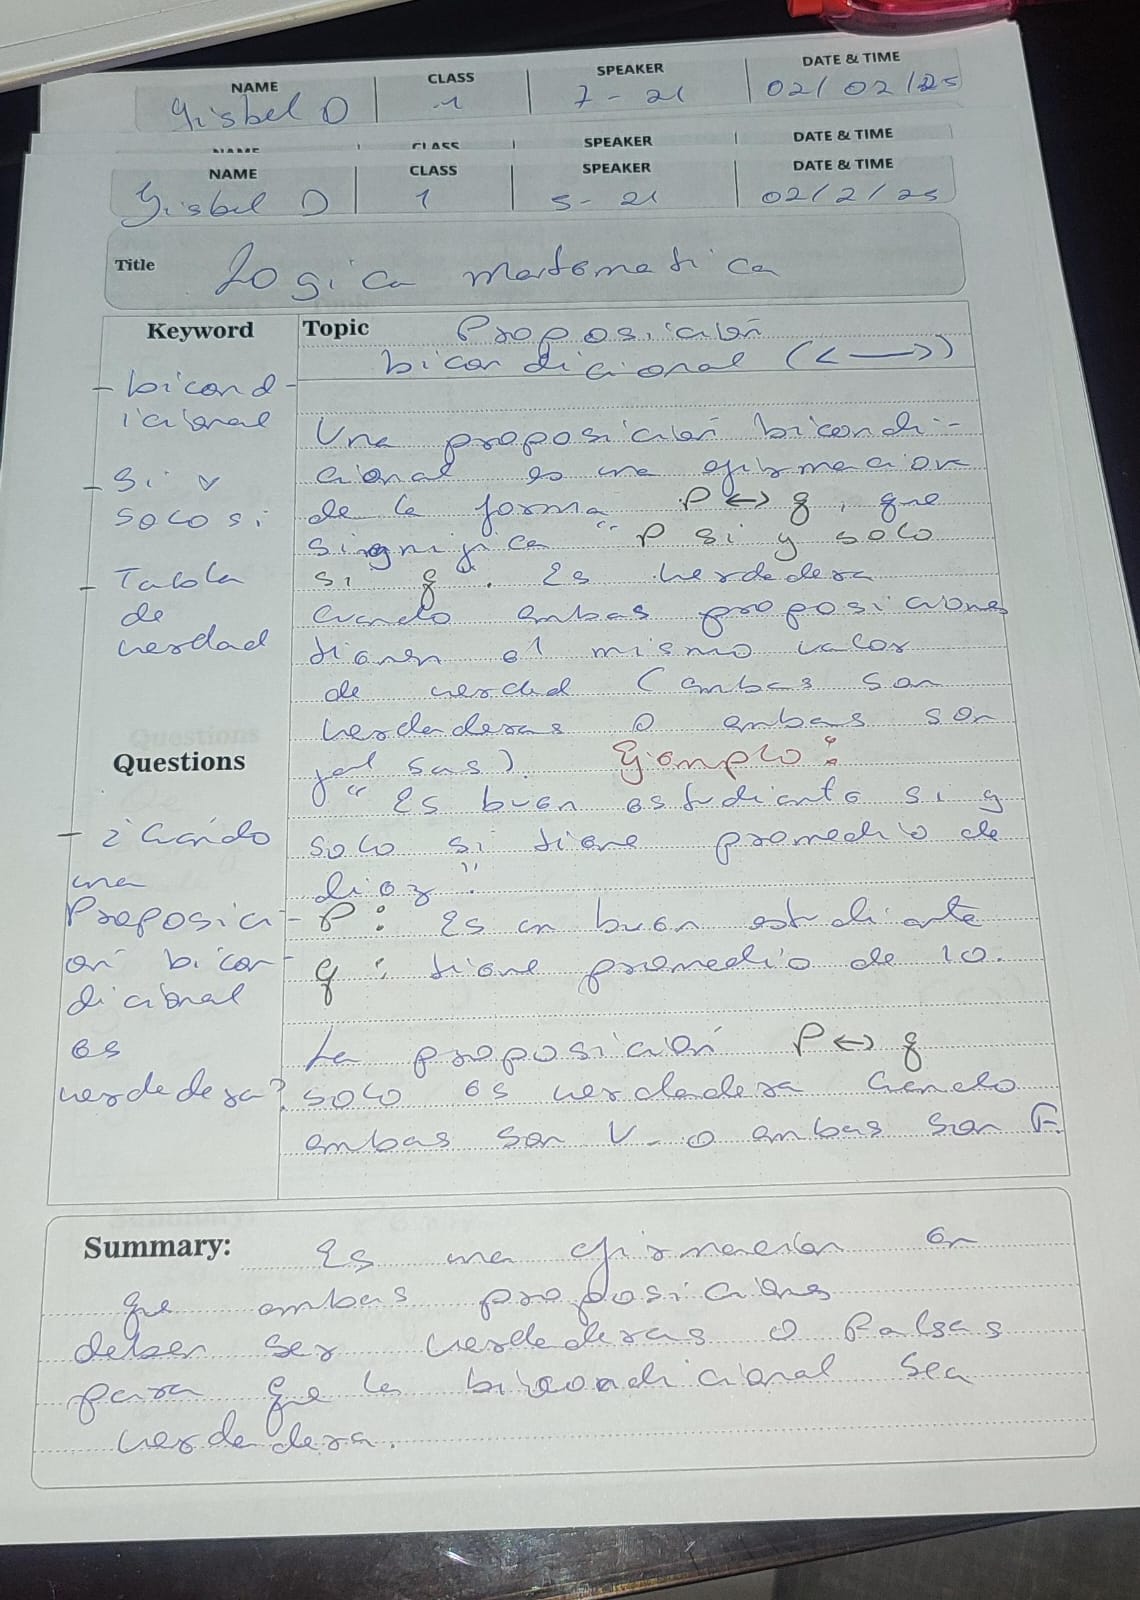 NAME CLASS SPEAKER DATE & TIME
Gisbel D 1 7-21 02/02/25
NAME CLASS SPEAKER DATE & TIME
NAME CLASS SPEAKER DATE & TIME
Gisbel D 1 5-21 02/2/25
Title Logica matematica
Keyword
- bicond-
icional
- Si y
solo si
- Tabla
de
verdad
Questions
- ¿Cuándo
una
Proposici-
on bicon-
dicional
es
verdadera?
Topic Proposición
bicondicional (<—>)
Una proposición bicondi-
cional es una afirmacion
de la forma P <-> q, que
significa "P si y solo
si q". Es verdadera
cuando ambas proposiciones
tienen el mismo valor
de verdad (ambas son
verdaderas o ambas son
falsas). Ejemplo:
"Es buen estudiante si y
solo si tiene promedio de
diez".
P: Es un buen estudiante
q: tiene promedio de 10.
La proposición P <-> q
solo es verdadera cuando
ambas son V o ambas son F.
Summary: Es una afirmación en
que ambas proposiciones
deben ser verdaderas o falsas
para que la bicondicional sea
verdadera.